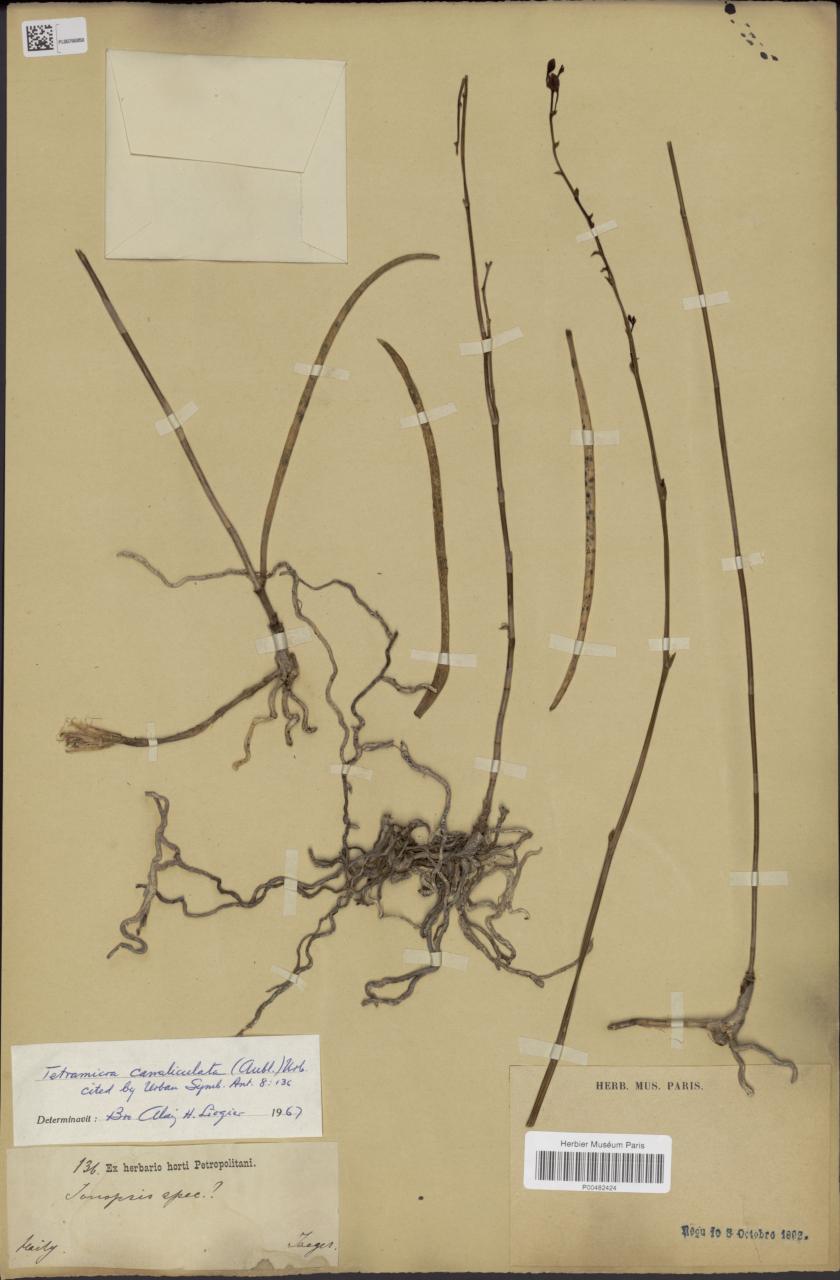 Tetramicra canaliculata (Aubl.) Urb.
cited by Urban Symb. Ant. 8: 136
Determinavit: Bro Alain H. Liogier 1967
136. Ex herbario horti Petropolitani.
Ionopsis spec.?
Haity. Jaeger.
HERB. MUS. PARIS.
Herbier Muséum Paris
P00482424
Reçu le 5 Octobre